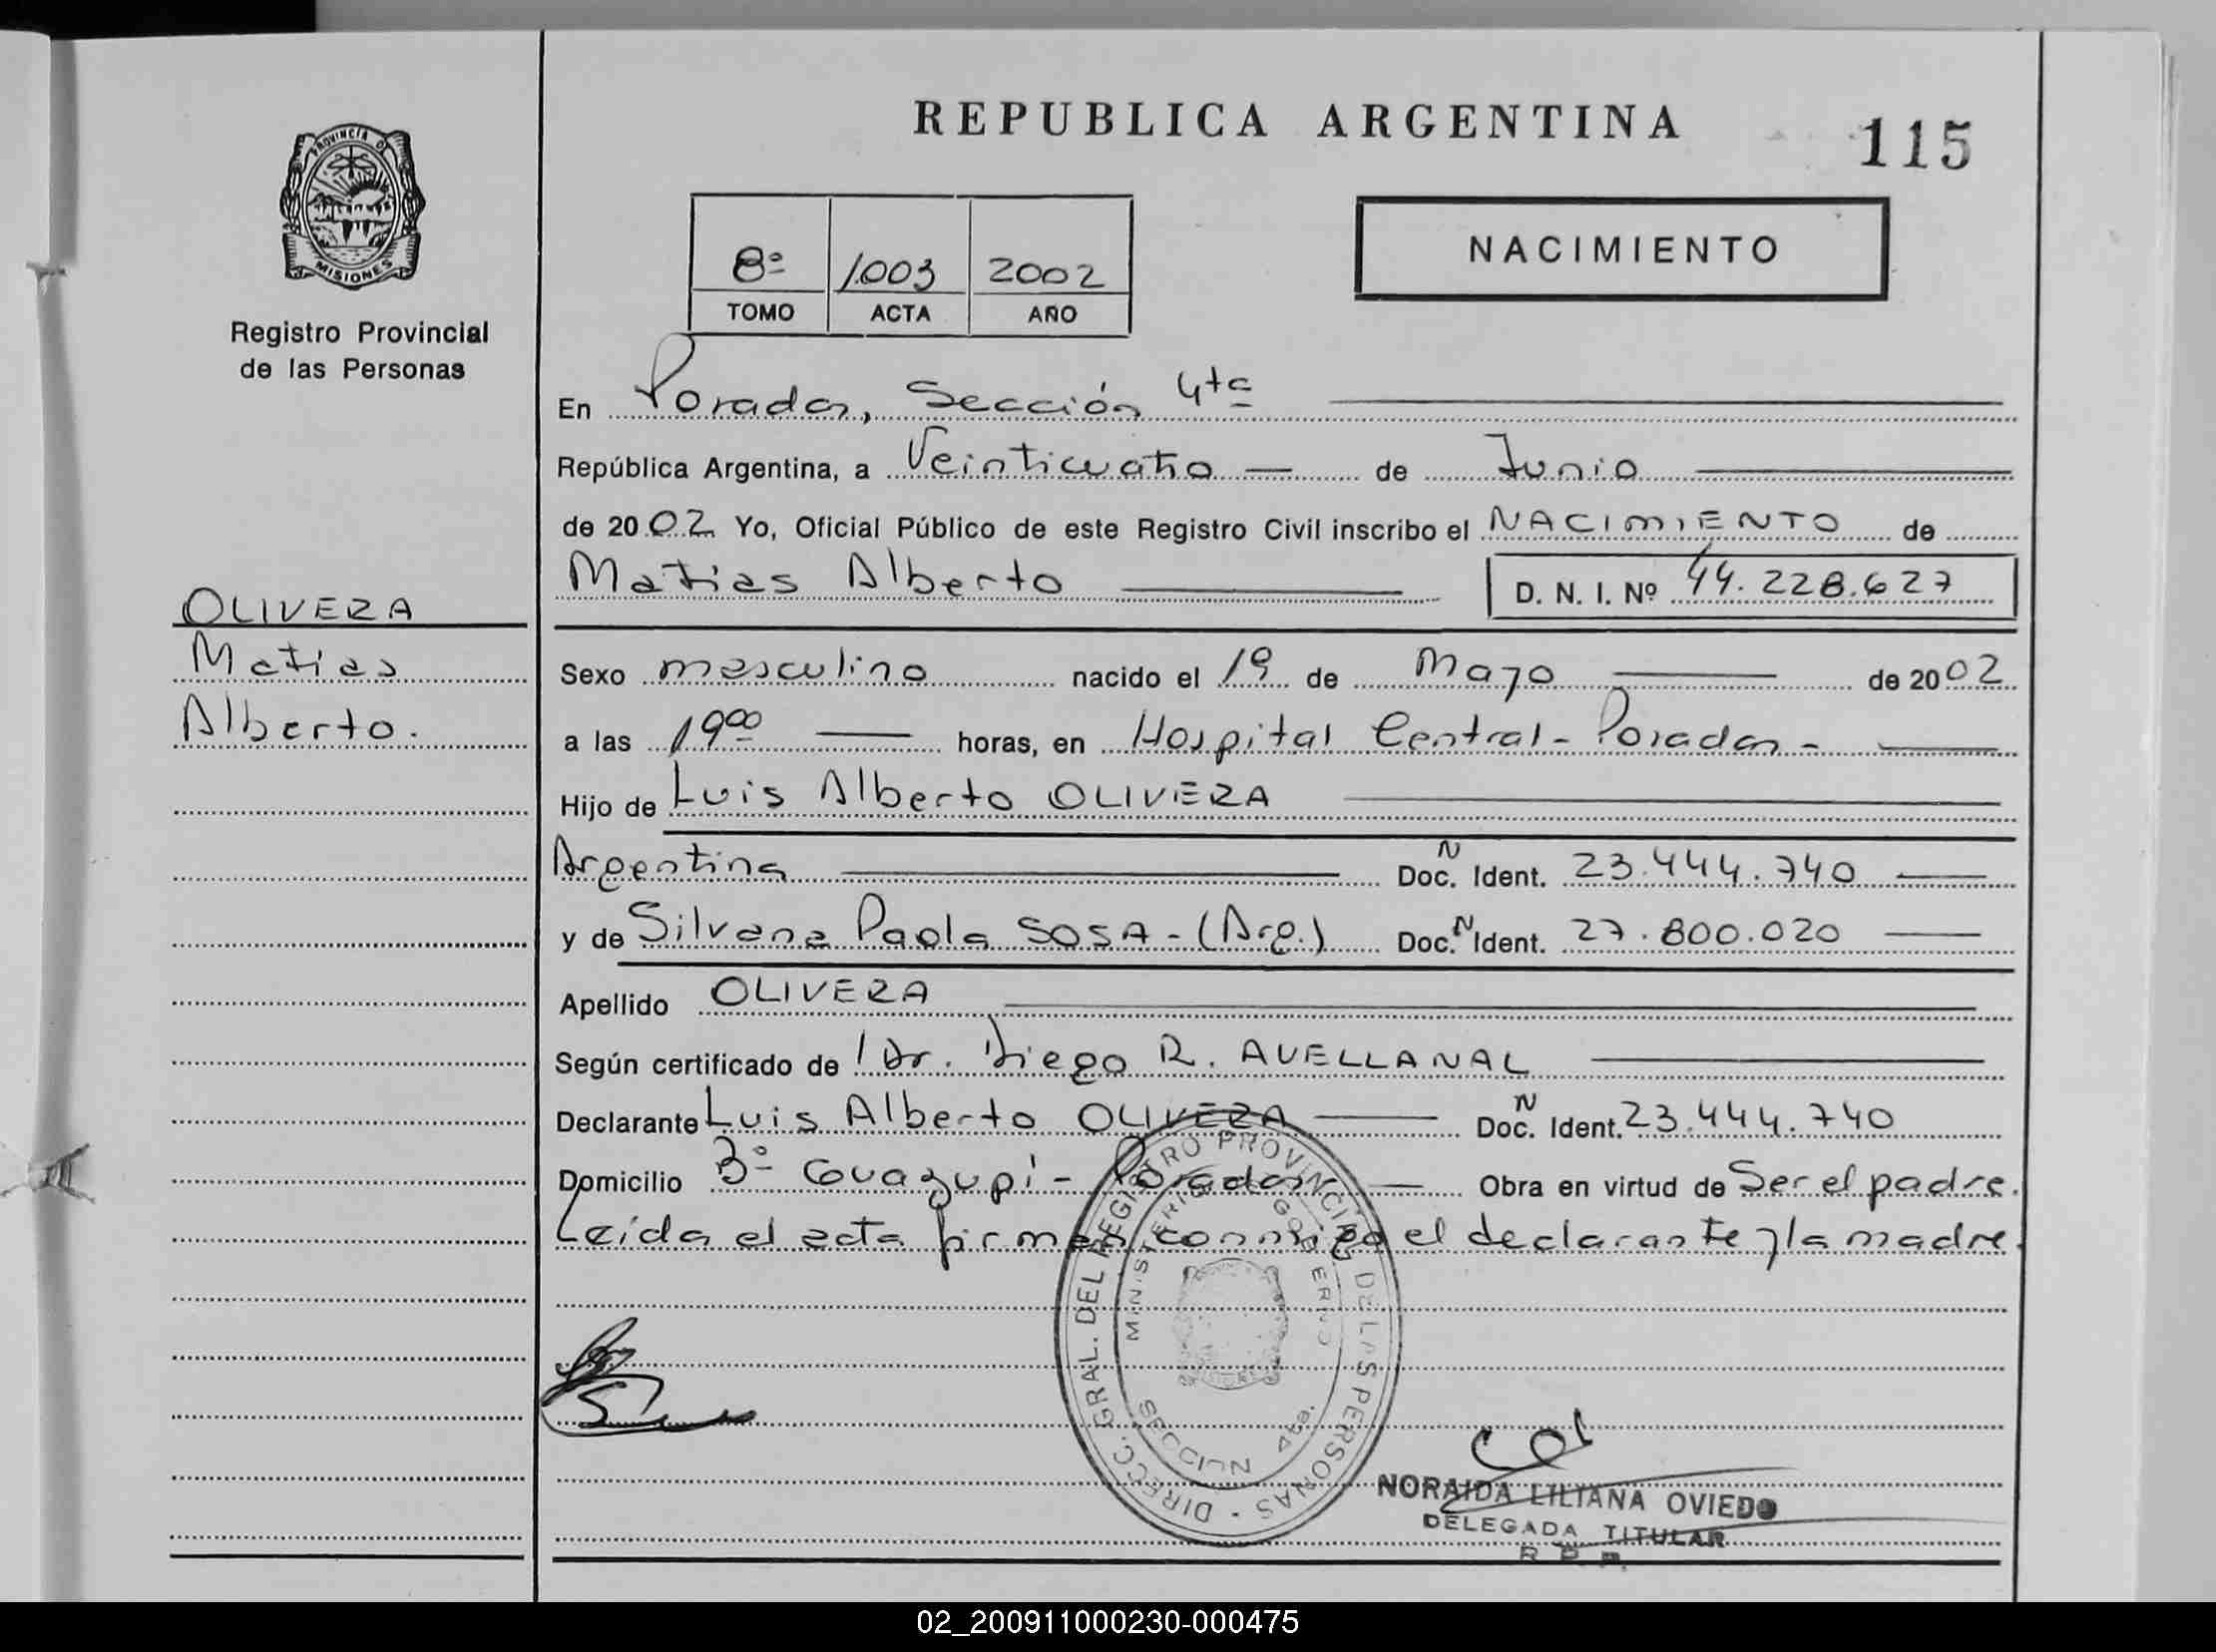 REPUBLICA ARGENTINA
115
PROVINCIA DE
MISIONES
Registro Provincial
de las Personas
8º 1.003 2002
TOMO ACTA AÑO
NACIMIENTO
En Posadas, Sección 4ta
República Argentina, a Veinticuatro de Junio
de 2002 Yo, Oficial Público de este Registro Civil inscribo el NACIMIENTO de
Matias Alberto D. N. I. Nº 44.228.627
OLIVERA
Matias
Alberto.
Sexo masculino nacido el 19 de Mayo de 2002
a las 19 00 horas, en Hospital Central - Posadas -
Hijo de Luis Alberto OLIVERA
Argentina Doc. N Ident. 23.444.740
y de Silvana Paola SOSA - (Arg.) Doc. N Ident. 27.800.020
Apellido OLIVERA
Según certificado de Dr. Diego R. AVELLANAL
Declarante Luis Alberto OLIVERA Doc. N Ident. 23.444.740
Domicilio Bº Guazupi - Posadas Obra en virtud de Ser el padre.
Leída el acta firman conmigo el declarante y la madre.
DIRECC. GRAL. DEL REGISTRO PROVINCIAL DE LAS PERSONAS -
MINISTERIO GOBIERNO
SECCION 4ta.
NORAIDA LILIANA OVIEDO
DELEGADA TITULAR
R. P. P.
02_200911000230-000475